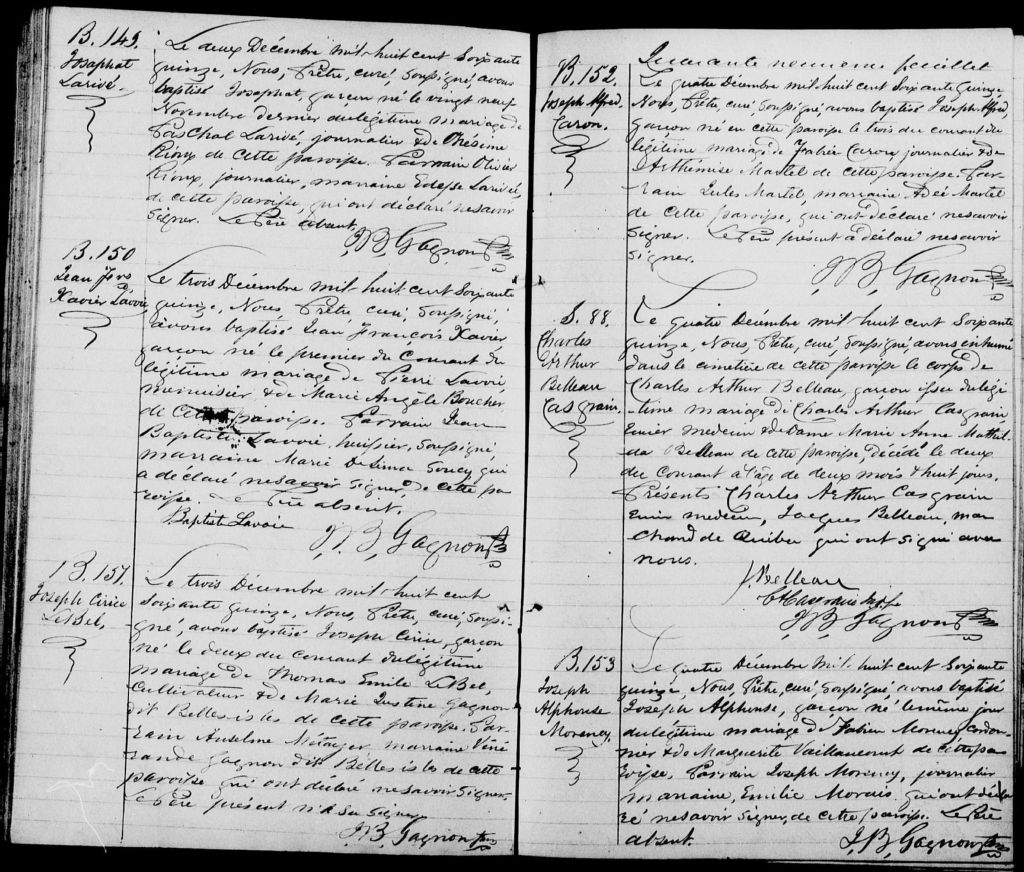 B. 149.
Josaphat
Larivé.
Le deux Décembre mil-huit cent soixante
quinze, Nous, Prêtre, curé, soussigné, avons
baptisé Josaphat, garçon né le vingt neuf
Novembre dernier du légitime mariage de
Paschal Larivé, journalier & de Phésime
Rioux de cette paroisse. Parrain Olivier
Rioux, journalier, marraine Edesse Larivée,
de cette paroisse, qui ont déclaré ne savoir
signer. Le Père absent.
J B Gagnon Ptre
B. 150
Jean Frs
Xavier Lavoie
Le trois Décembre mil-huit cent soixante
quinze, Nous, Prêtre, curé, soussigné,
avons baptisé Jean François Xavier
garçon né le premier du Courant du
légitime mariage de Pierre Lavoie
menuisier & de Marie Angèle Boucher
de cette paroisse. Parrain Jean
Baptiste Lavoie huissier, soussigné,
marraine Marie Delima Soucy qui
a déclaré ne savoir signer, de cette pa
roisse. Le Père absent.
J. Baptiste Lavoie
J. B. Gagnon Ptre
B. 151.
Joseph Cirice
LeBel,
Le trois Décembre mil-huit cent
soixante quinze, Nous, Prêtre, curé, soussi-
gné, avons baptisé Joseph Cirice, garçon
né le deux du courant du légitime
mariage de Thomas Emile LeBel,
Cultivateur & de Marie Justine Gagnon
dit Belles-isles de cette paroisse. Par-
rain Anselme Métayer marraine Véné-
rande Gagnon dit Belles isles de cette
paroisse qui ont déclaré ne savoir signer.
Le Père présent n'a su signer
J. B. Gagnon Ptre
Cinquante neuvième feuillet
B. 152
Joseph Alfred
Caron.
Le quatre Décembre mil-huit cent soixante quinze
Nous, Prêtre, curé, soussigné, avons baptisé Joseph Alfred,
garçon né en cette paroisse le trois du courant du
légitime mariage de Fabien Caron journalier & de
Arthémise Martel de cette paroisse. Par-
rain Jules Martel, marraine Adée Martel
de cette paroisse, qui ont déclaré ne savoir
signer. Le Père présent a déclaré ne savoir
signer.
J B Gagnon Ptre
S. 88.
Charles
Arthur
Belleau
Casgrain.
Le quatre Décembre mil-huit cent soixante
quinze, Nous, Prêtre, curé, soussigné, avons inhumé
dans le cimetière de cette paroisse le corps de
Charles Arthur Belleau, garçon issu du légi
time mariage de Charles Arthur Casgrain
Ecuier medecin & de Dame Marie Anne Mathil-
da Belleau de cette paroisse, décédé le deux
du Courant à l'âge de deux mois & huit jours.
Présents Charles Arthur Casgrain
Ecuier medecin, Jacques Belleau, mar
chand de Québec qui ont signé avec
nous.
J Belleau
J. B. Gagnon Ptre
B. 153
Joseph
Alphonse
Morency.
Le quatre Décembre mil-huit cent soixante
quinze, Nous, Prêtre, curé, soussigné, avons baptisé
Joseph Alphonse, garçon né le même jour
du légitime mariage d'Fabien Morency cordon-
nier & de Marguerite Vaillancourt de cette pa
roisse, Parrain Joseph Morency, journalier
marraine, Emilie Morais qui ont décla
ré ne savoir signer, de cette paroisse. Le Père
absent.
J. B. Gagnon Ptre